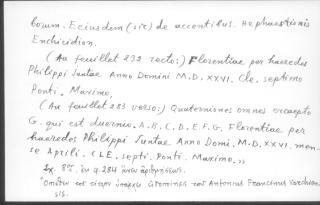 borum. Eciusdem (sic) de accentibus. Hephaestionis
Enchiridion.
(Au feuillet 232 recto:) Florentiae per haeredes
Philippi Juntae Anno Domini M.D.XXVI. Cle. septimo
Ponti. Maximo.
(Au feuillet 283 verso:) Quaterniones omnes excaepto
G. qui est duernio. A.B.C.D.E.F.G. Florentiae per
haeredes Philippi Juntae Anno Domi. M.D.XXVI. men-
se Aprili. CLE. septi. Ponti. Maximo.»
8º. 284 ἄνευ ἀριθμήσεως.
Antonius Francinus Varchien-
sis.